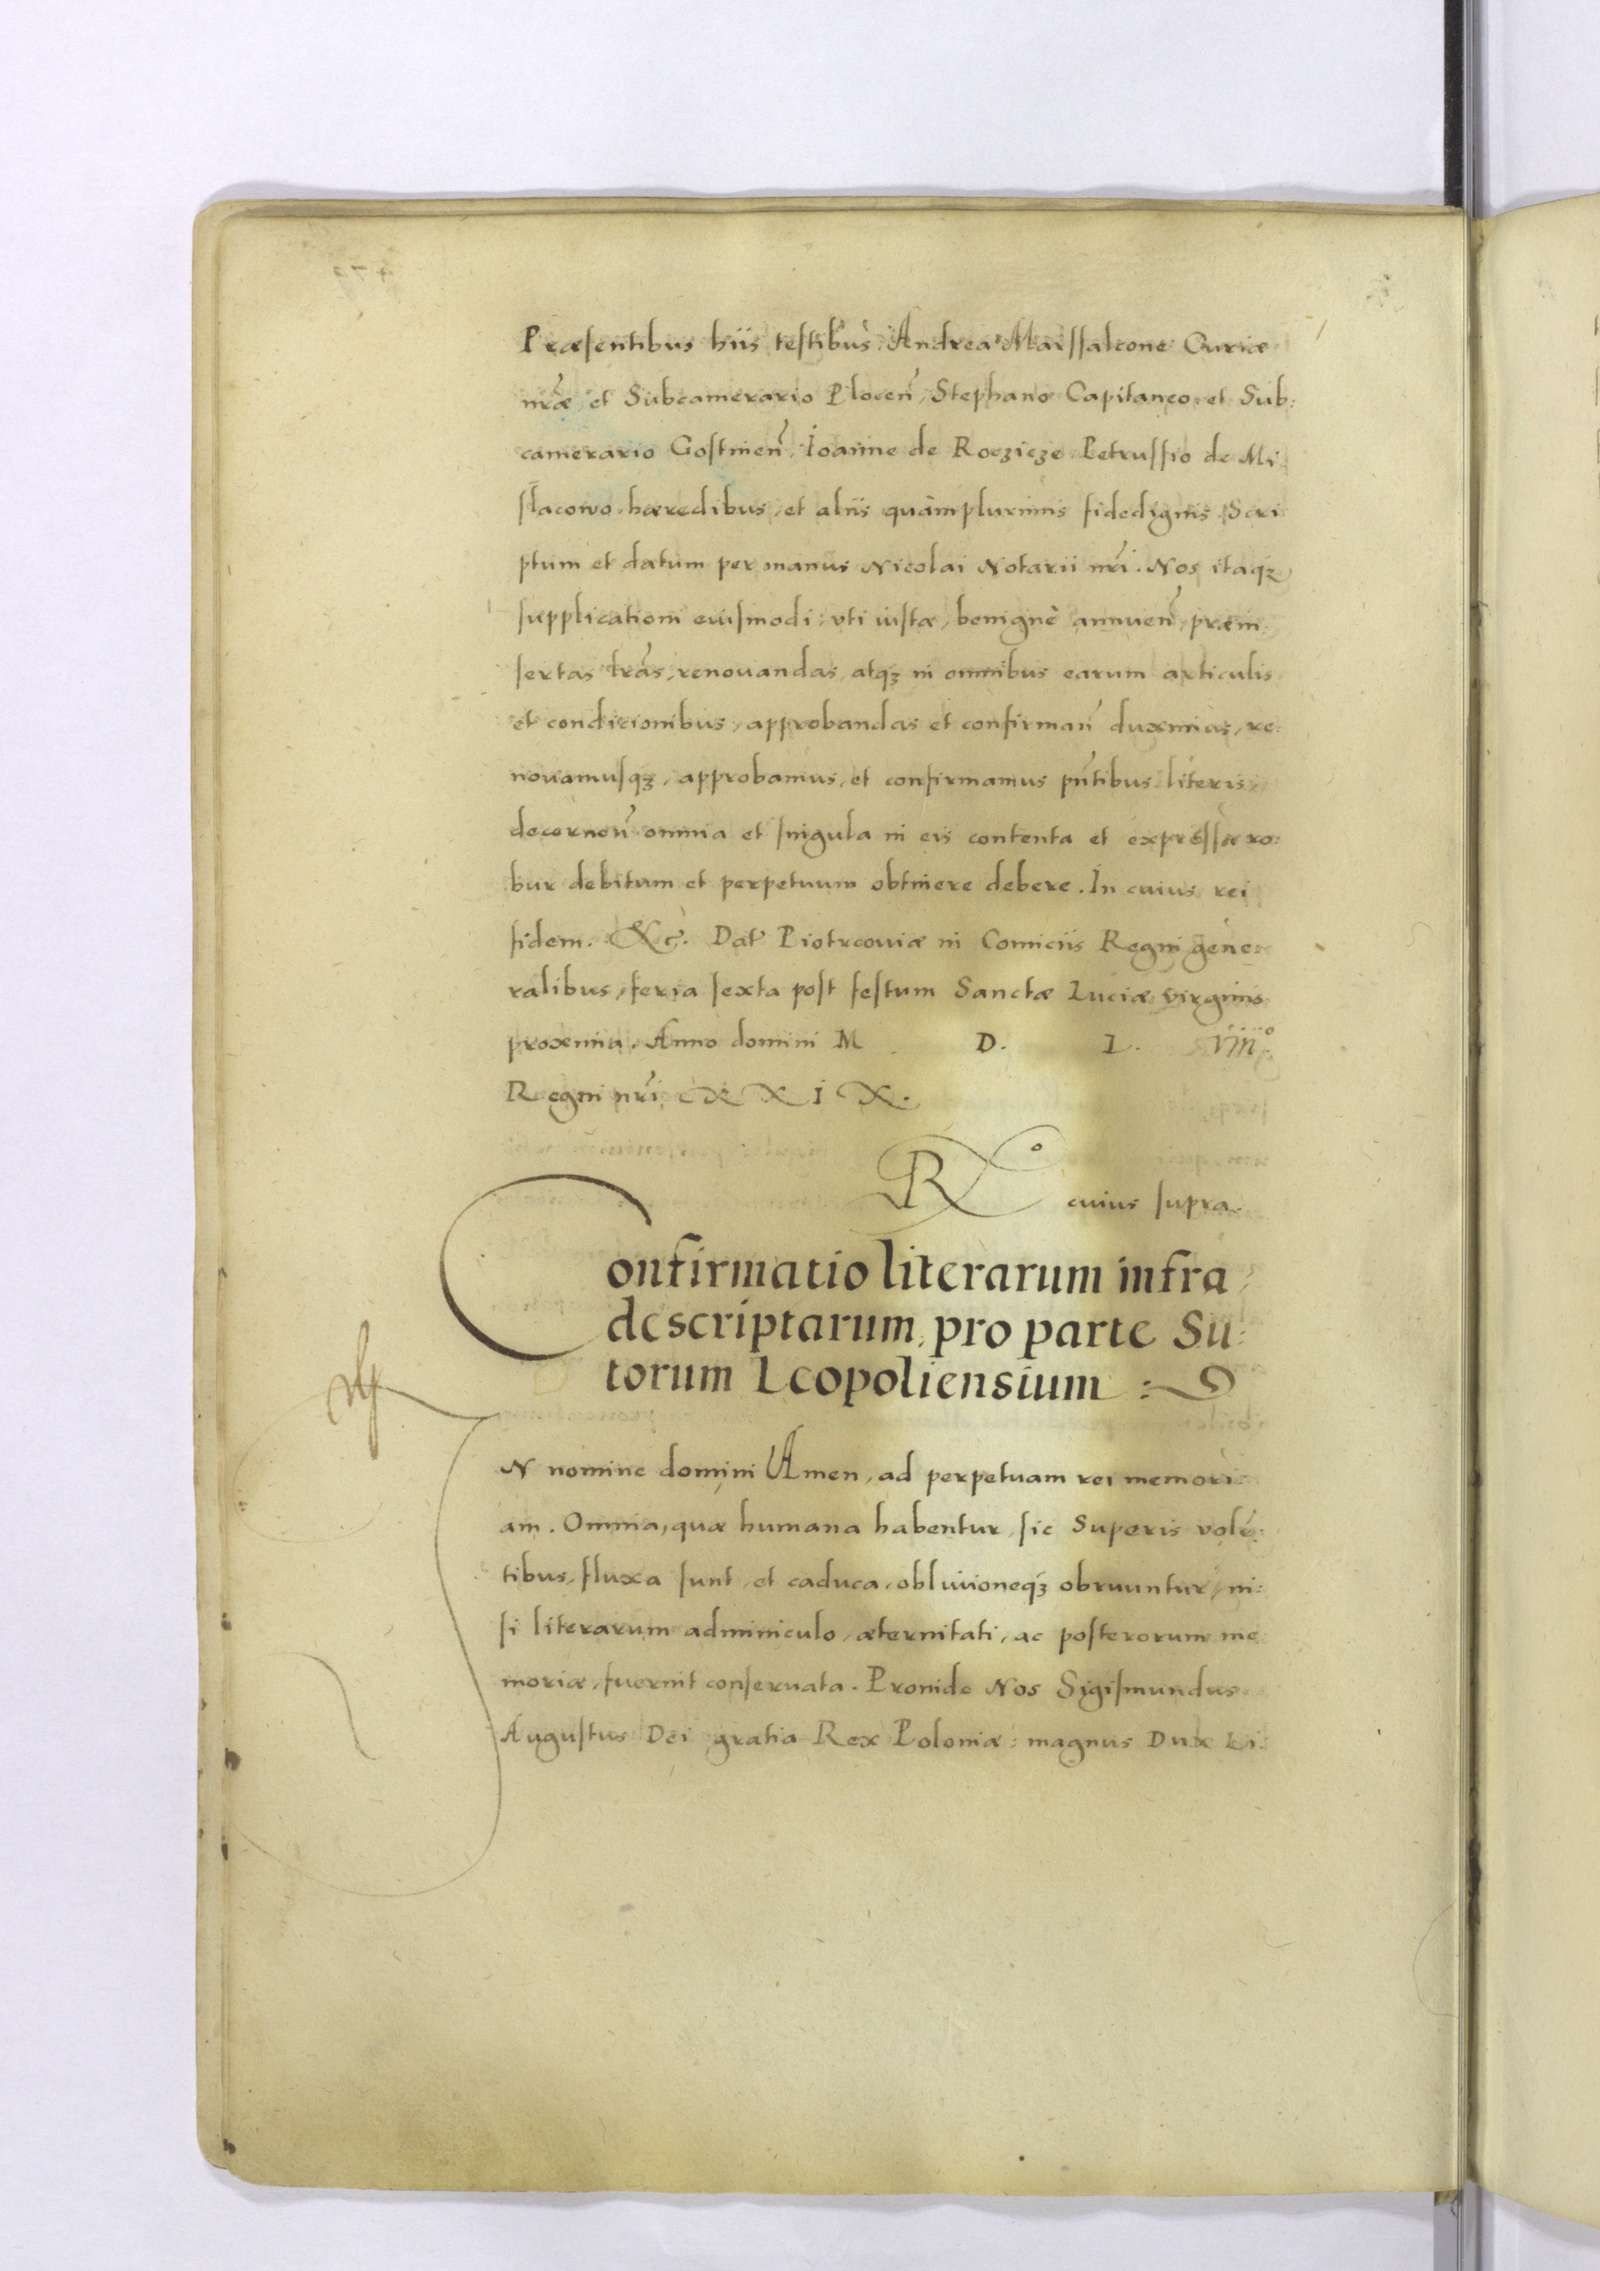 Præsentibus hiis testibus, Andrea Marssalcone Curiæ
nræ, et Subcamerario Plocen, Stephano Capitaneo et Sub:
camerario Gostinen, Ioanne de Roczicze Petrussio de Mi
slacowo hæredibus, et aliis quàmplurimis fidedignis. Scri
ptum et datum per manus Nicolai Notarii nri. Nos itaqz
supplicationi eiusmodi: vti iustæ, benignè annuen, præin
sertas lras, renouandas, atqz in omnibus earum articulis
et condicionibus, approbandas et confirman duximus, re:
nouamusqz, approbamus, et confirmamus pntibus literis
decernen omnia et singula in eis contenta et expressa ro:
bur debitum et perpetuum obtinere debere. In cuius rei
fidem. &c. Dat Piotrcouiæ in Comiciis Regni gene:
ralibus, feria sexta post festum Sanctæ Luciæ virginis
proxima. Anno domini M D. L. VIII°.
Regni nri XXIX.
R° cuius supra.
Confirmatio literarum infra
descriptarum, pro parte Su:
torum Leopoliensium :
IN nomine domini Amen, ad perpetuam rei memori:
am. Omnia, quæ humana habentur, sic Superis volē:
tibus, fluxa sunt, et caduca, obliuioneqz obruuntur, ni:
si literarum adminiculo, æternitati, ac posterorum me
moriæ, fuerint conseruata. Proinde Nos Sigismundus
Augustus Dei gratia Rex Poloniæ: magnus Dux Li: